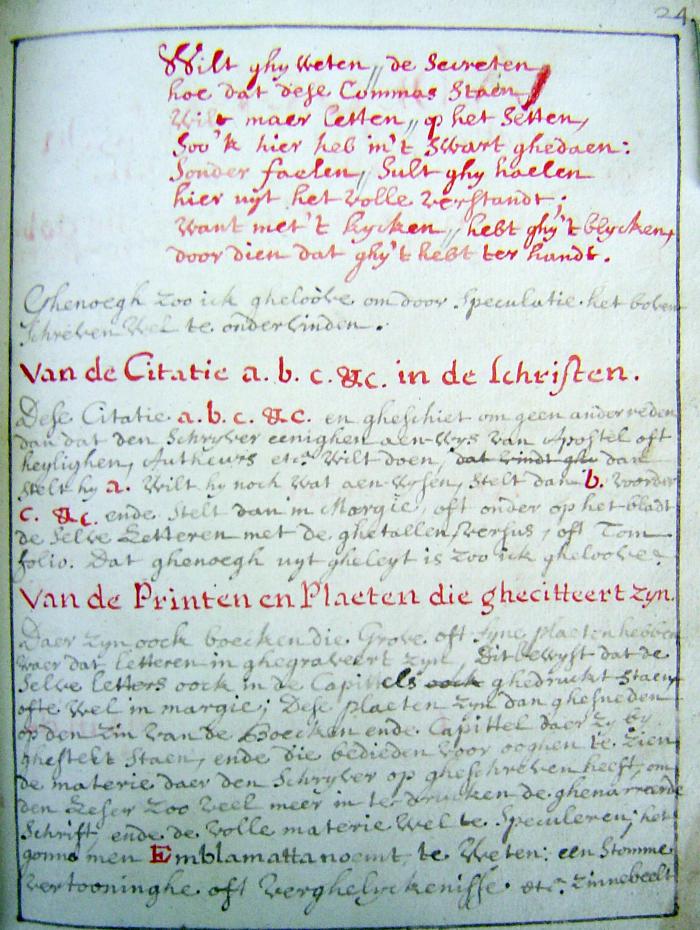 24,
Wilt ghy weten,, de Secreten,
hoe dat dese Commas Staen,
Wilt maer letten,, op het Setten,
Soo'k hier heb in't Swart ghedaen:
Sonder faelen, Sult ghy haelen
hier uyt het volle verstandt;
Want met't kycken,, hebt ghy't blycken,
door dien dat ghy't hebt ter handt.
Ghenoegh zoo ick gheloove om door Speculatie het boven
schreven Wel te ondervinden.
Van de Citatie a. b. c. &c. in de Schriften.
Dese Citatie a. b. c. &c. en gheschiet om geen ander reden
dan dat den Schryver eenighen aen-wys van Apostel oft
heylighen, Autheurs etc? Wilt doen, dat vindt ghy dan
stelt hy a. Wilt hy noch wat aen-wysen, stelt dan b. voorder
c. &c. ende stelt dan in Margie, oft onder op het bladt
de Selve Letteren met de ghetallen, versus, oft Tom
folio. Dat ghenoegh uyt gheleyt is zoo ick gheloove.
Van de Printen en Plaeten die ghecitteert zyn.
Daer zyn oock boecken die Grove oft fyne plaeten hebben
waer dat letteren in ghegraveert zyn, Dit bewyst dat de
Selve letters oock in de Capittels oock ghedruckt Staen
ofte wel in margie; Dese plaeten zyn dan ghesneden
op den zin van de Boecken ende Capittel daer zy by
ghestelt Staen, ende die bedieden voor ooghen te zien
de materie daer den Schryver op gheschreven heeft, om
den Leser zoo veel meer in te drucken de ghenarreerde
Schrift, ende de volle materie wel te Speculeren; het
gonne men Emblamatta noemt, te Weten: een Stomme
vertooninghe oft verghelyckenisse. etc. zinnebeelt